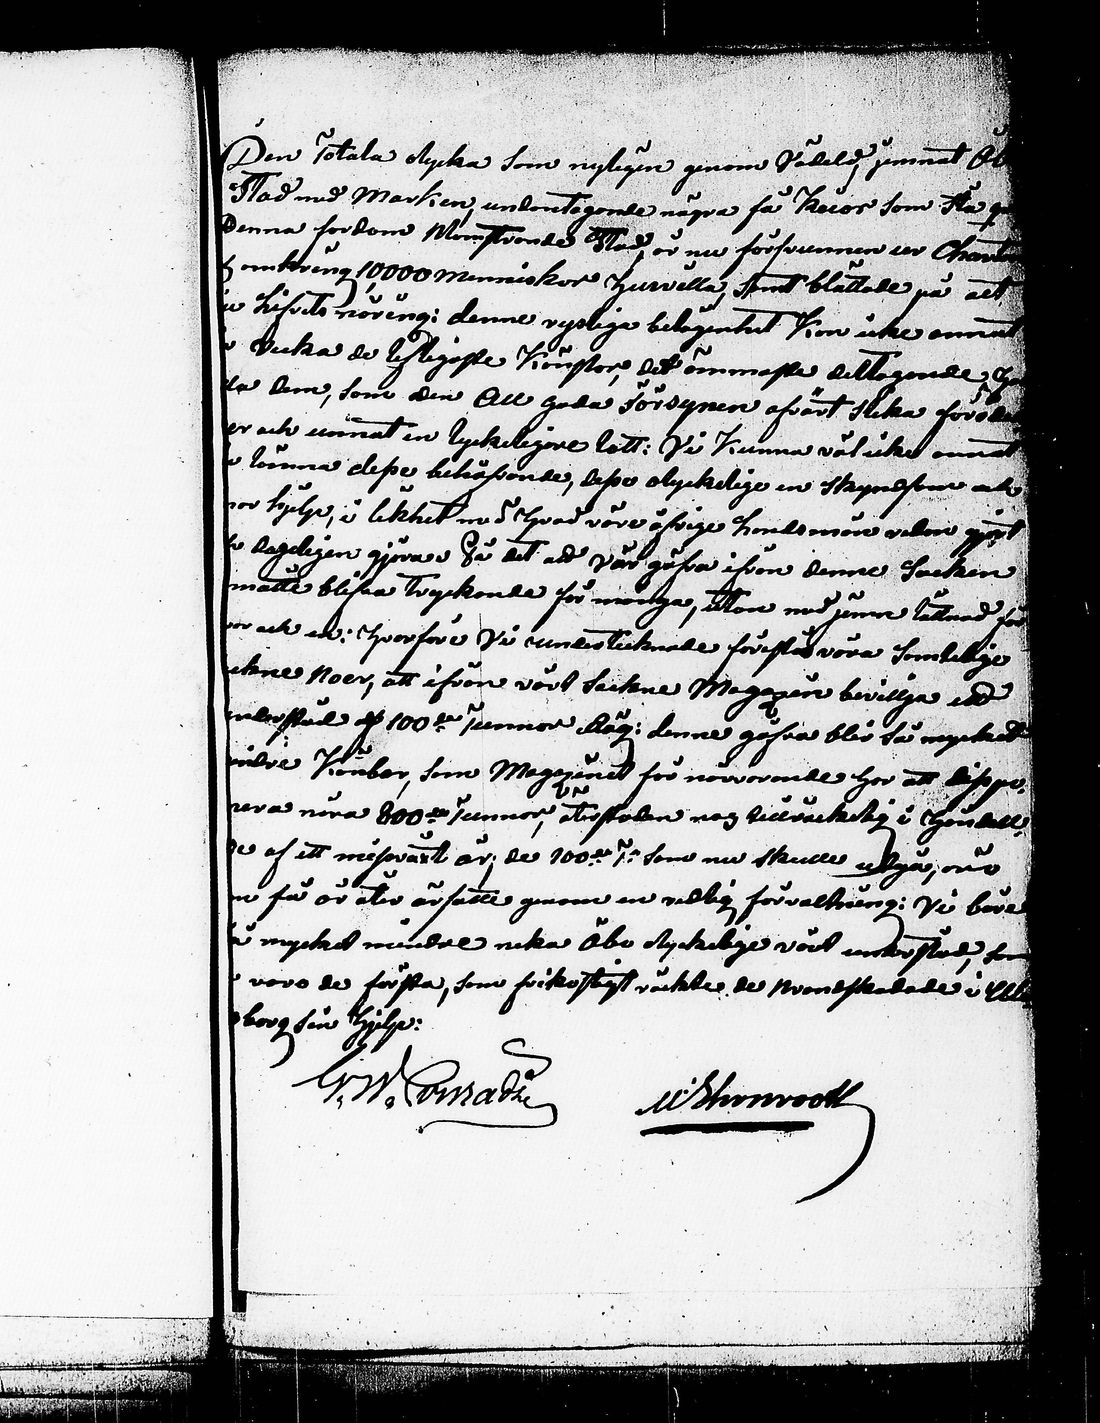 Den Totala olycka som nyligen genom Vådeld, jemnat Åb
Stad med Marken, undantagande några få Kåior som stå
Denna fordom Blomstrande Stad, är nu försvunnen ur Chartan
omkring 10,000 Menniskor Husvilla, samt blåttade på alt
Lifvets näring: denne rysliga belägenhet kan icke annat
väcka de lifligaste Känslor, det ömmaste deltagande, ho
dem, som den All goda Försynen afvärt slika förödel
er och unnat en lyckeligare lott: Vi Kunna väl icke annat
lämna desse behöfvande, desse olyckelige en skyndsam och
hjelp, i likhet med hvad våre öfrige Landsmän redan gjort
dageligen gjöra På det att vår gåfva ifrån denne Socken
måtte blifva tryckande för många, utan med jämn lättnad för
och en: hvarföre Vi undertecknade föreslå våra Samtelige
Boer, att ifrån vårt Sockne Magazin bevillja ett
understöd af 100de Tunnor Råg: denne gåfva blir så mycket
mindre Kännbar, som Magazinet för närvarande har att dispo
nera nära 800de Tunnor, återstoden nog tillräckelig i händelse
af ett missväxt år; de 100de Tr som nu skulle utgå, när
få år åter ärsatte genom en redlig förvaltning: Vi böre
så mycket mindre neka Åbo olyckelige vårt understöd, som
voro de första, som frikostigt räckte de Brandskadade i Ule
borg sin hjelp:
G. W. Conradi